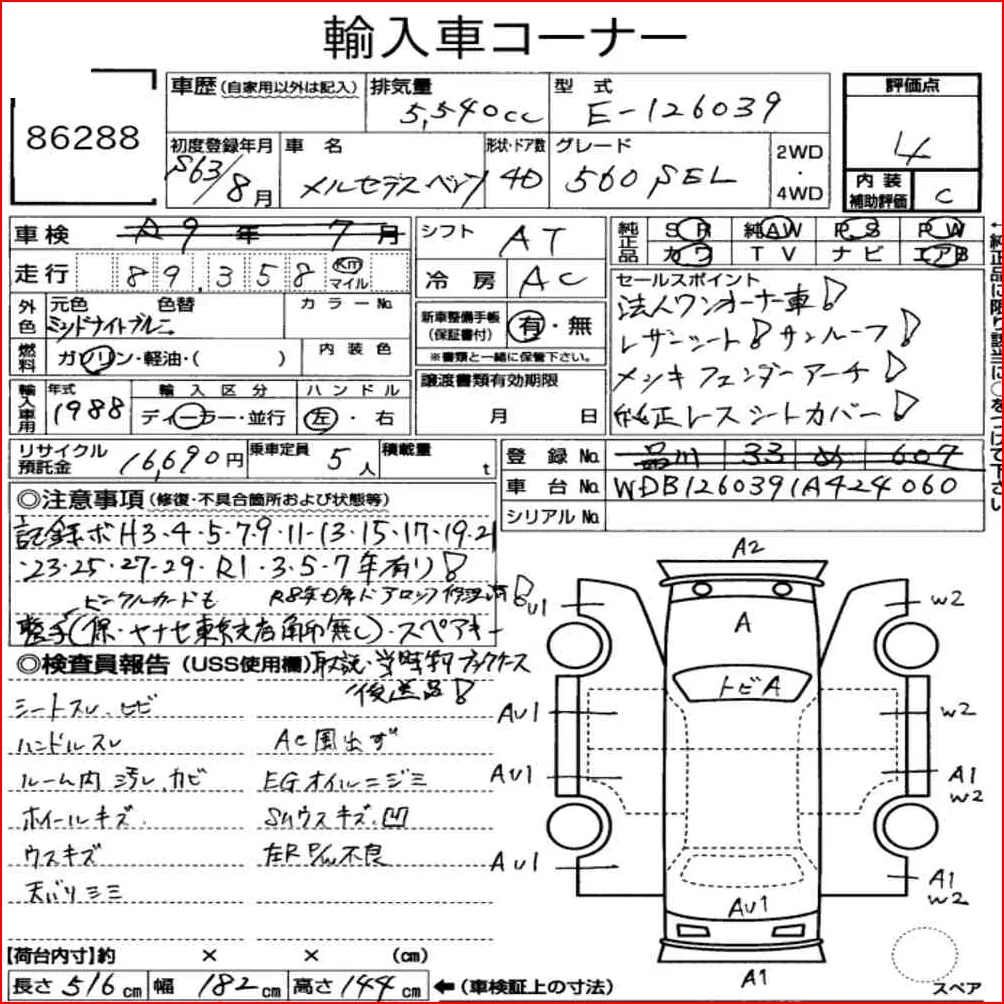 輸入車コーナー
86288
車歴(自家用以外は記入)
排気量 5,540cc
型式 E-126039
評価点 4
初度登録年月 S63/8月
車名 メルセデスベンツ
形状・ドア数 4D
グレード 560SEL
2WD・4WD
内装補助評価 C
車検 R9年7月
シフト AT
純正品 SR 純AW PS PW
カワ TV ナビ エアB
走行 89,358 Km マイル
冷房 AC
セールスポイント
法人ワンオーナー車!
レザーシート!サンルーフ!
メッキフェンダーアーチ!
純正レースシートカバー!
外色 元色 色替 カラーNo.
ミッドナイトブルー
新車整備手帳(保証書付) 有・無
※書類と一緒に保管下さい。
燃料 ガソリン・軽油・( ) 内装色
譲渡書類有効期限
月 日
輸入車用 年式 1988
輸入区分 ディーラー・並行
ハンドル 左・右
リサイクル預託金 16,690円
乗車定員 5人
積載量 t
登録No. 品川 33 め 607
車台No. WDB1260391A424060
シリアルNo.
◎注意事項(修復・不具合箇所および状態等)
記録ボ H3・4・5・7・9・11・13・15・17・19・21
・23・25・27・29・R1・3・5・7年有り!
R8年
・スペアキー
◎検査員報告(USS使用欄)
取説・
後送品!
シートスレ、ヒビ
ハンドルスレ
AC風出ず
ルーム内汚レ、カビ
EGオイルニジミ
ホイールキズ.
SMウスキズ.凹
ウスキズ
左R P/W不良
天バリシミ
A2
U1
W2
A
トビA
AU1
W2
AU1
A1
W2
AU1
A1
W2
AU1
A1
スペア
【荷台内寸】約 × × (cm)
長さ516cm 幅182cm 高さ144cm ←(車検証上の寸法)